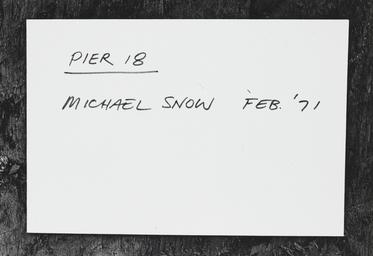 PIER 18
MICHAEL SNOW FEB. '71